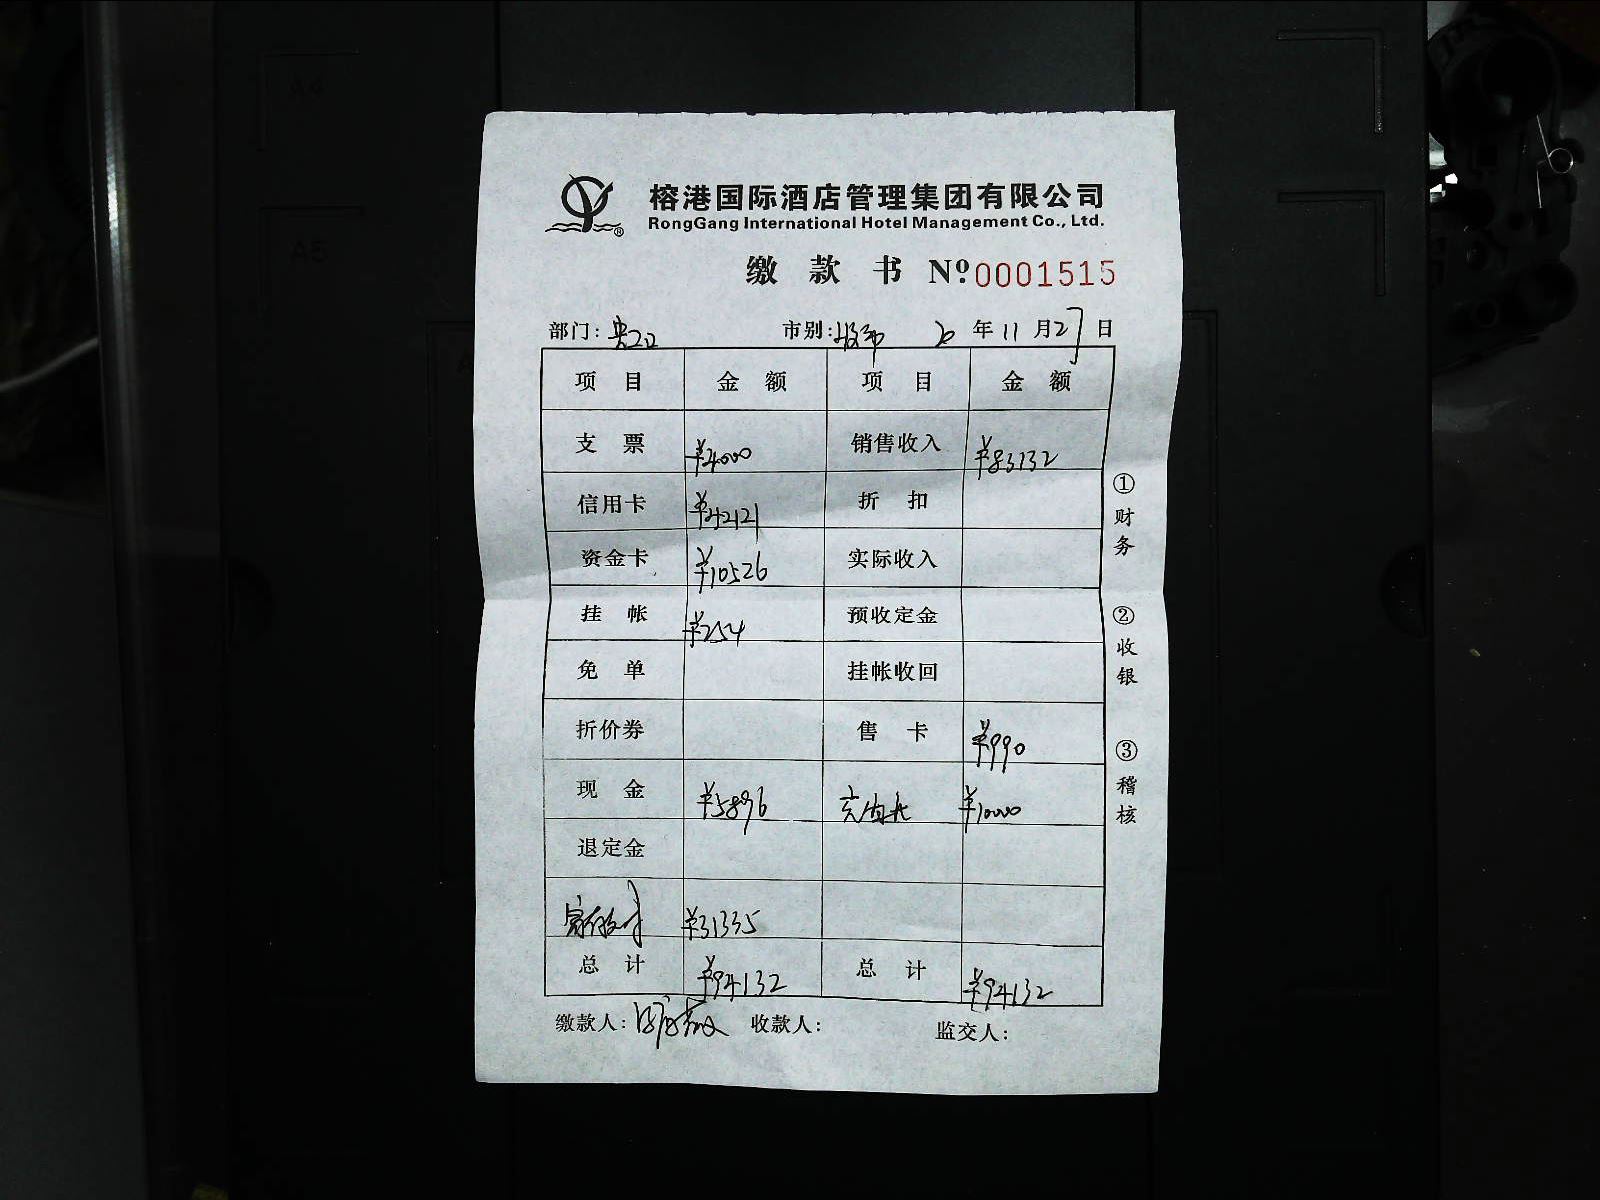 榕港国际酒店管理集团有限公司
RongGang International Hotel Management Co., Ltd.
缴款书 Nº 0001515
部门: 市别: 20 年 11 月 27 日
项目 金额 项目 金额
支票 ¥4000 销售收入 ¥83132
信用卡 ¥42121 折扣
资金卡 ¥10526 实际收入
挂帐 ¥254 预收定金
免单 挂帐收回
折价券 售卡 ¥990
现金 ¥5896 ¥10000
退定金
¥31335
总计 ¥94132 总计 ¥94132
缴款人: 收款人: 监交人:
①财务 ②收银 ③稽核
A4
A5